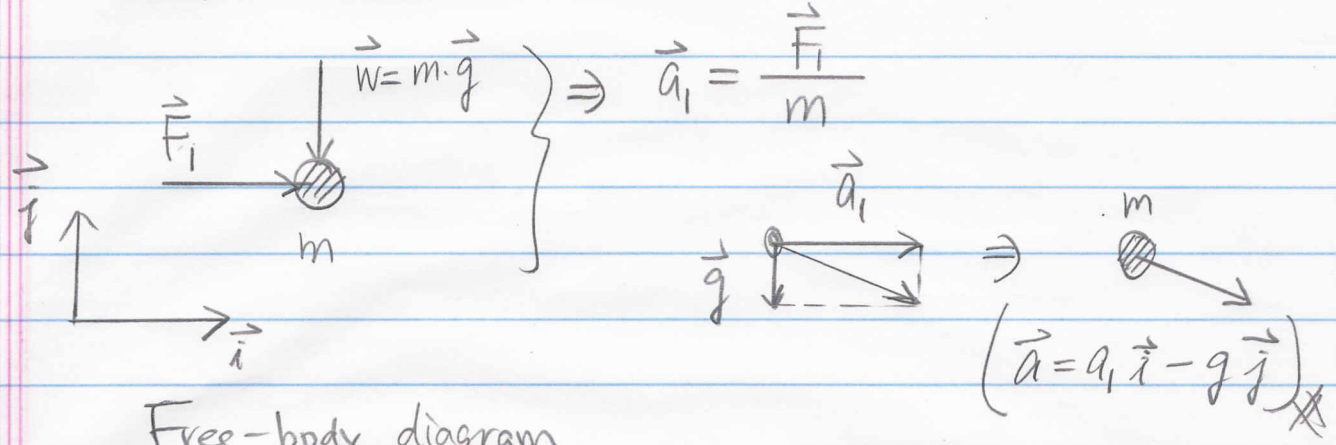 w⃗ = m·g⃗ ⇒ a⃗₁ = F⃗₁ / m
F⃗₁
j⃗
m
i⃗
a⃗₁
g⃗ ⇒
m
(a⃗ = a₁ i⃗ − g j⃗)
Free-body diagram